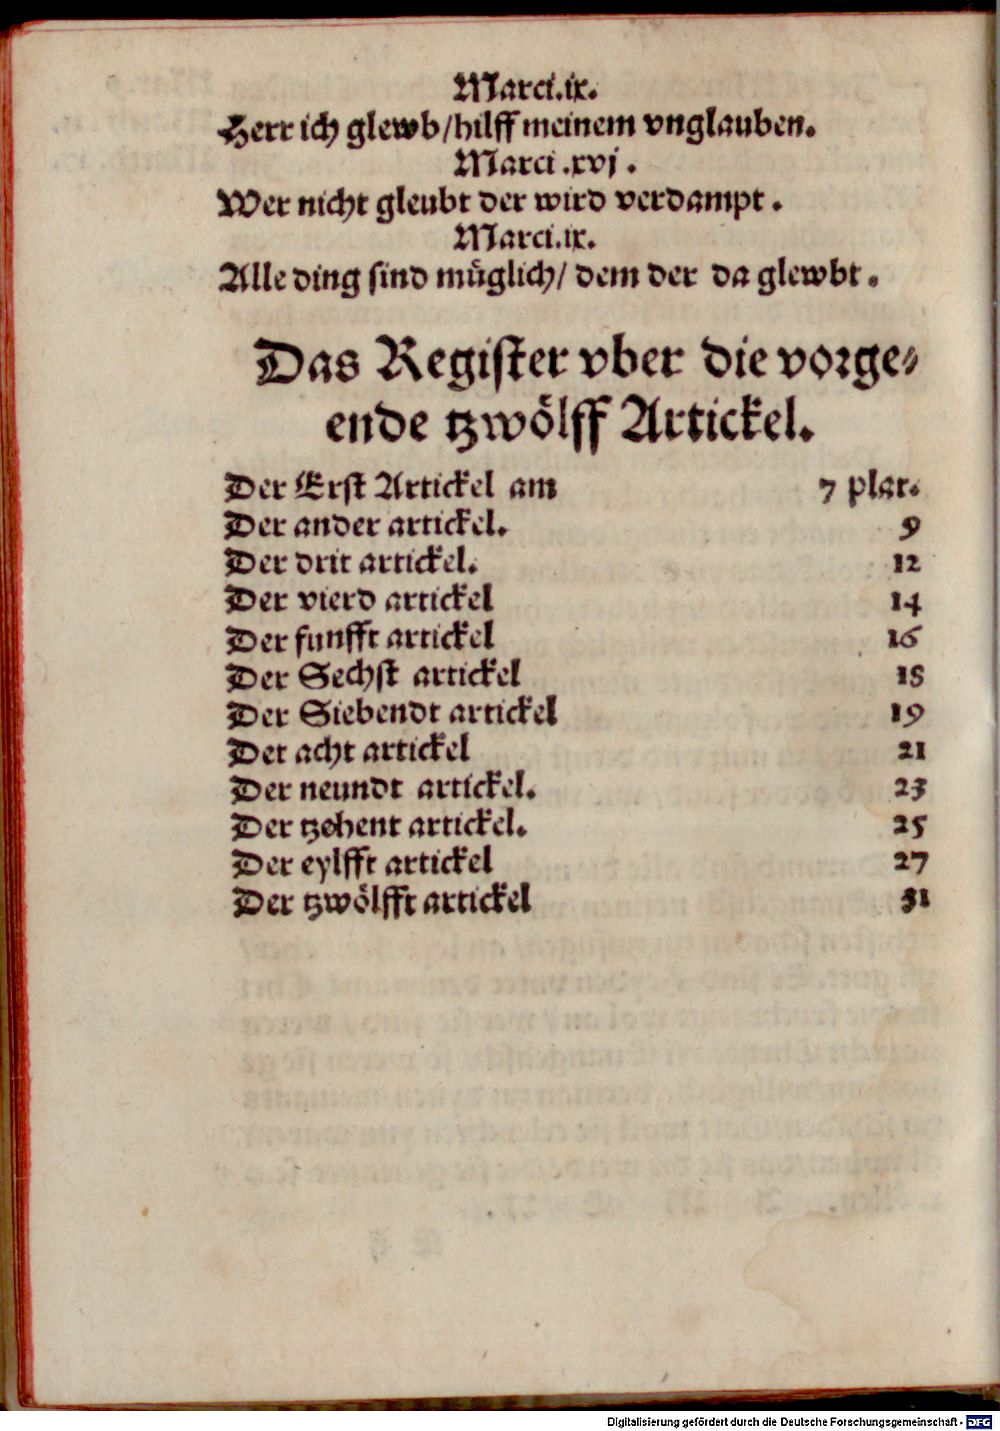 Marci.ix.
Herr ich glewb/hilff meinem vnglauben.
Marci .xvj .
Wer nicht gleubt der wird verdampt .
Marci.ix.
Alle ding sind müglich/ dem der da glewbt .
Das Register vber die vorge-
ende tzwölff Artickel.
Der Erst Artickel am 7 plat.
Der ander artickel. 9
Der drit artickel. 12
Der vierd artickel 14
Der funfft artickel 16
Der Sechst artickel 18
Der Siebendt artickel 19
Det acht artickel 21
Der neundt artickel. 23
Der tzehent artickel. 25
Der eylfft artickel 27
Der tzwölfft artickel 31
Digitalisierung gefördert durch die Deutsche Forschungsgemeinschaft - DFG